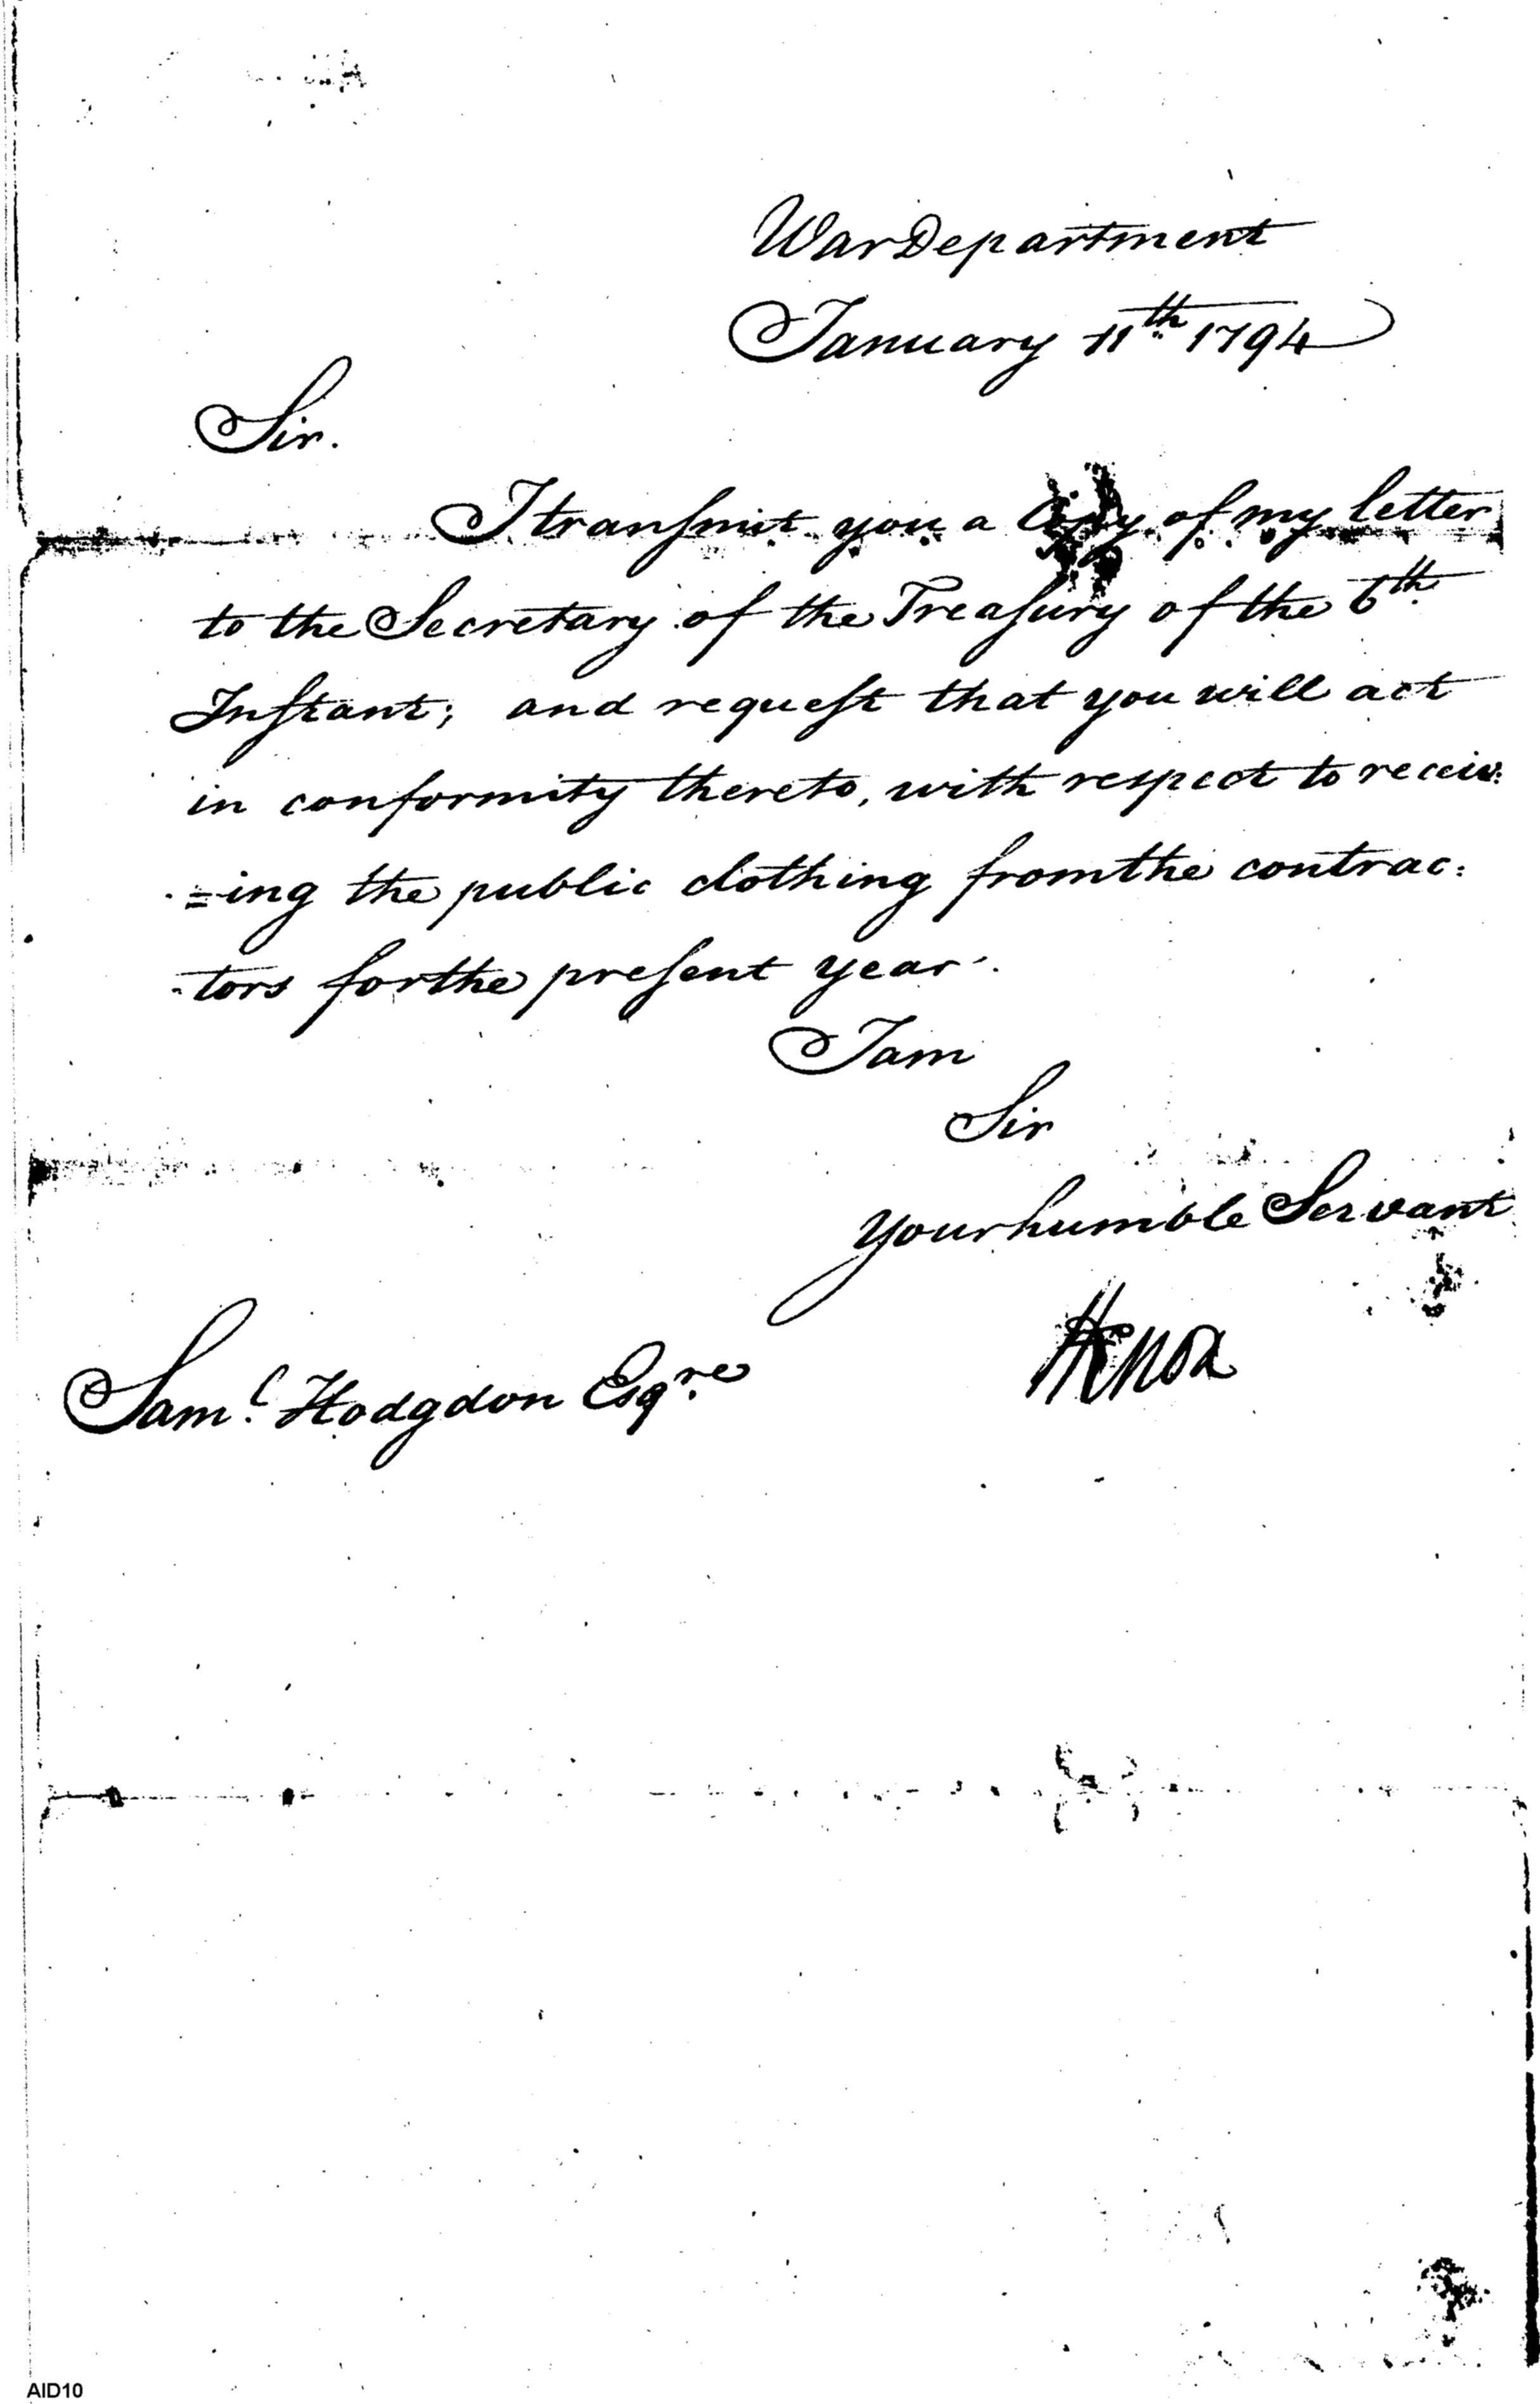 War Department
January 11th. 1794
Sir.
I tranſmit you a Copy of my letter
to the Secretary of the Treaſury of the 6th.
Inſtant; and requeſt that you will act
in conformity thereto, with respect to receiv:
=ing the public clothing from the contrac:
-tors for the preſent year.
I am
Sir
your humble Servant
HKnox
Saml. Hodgdon Esqre.
AID10